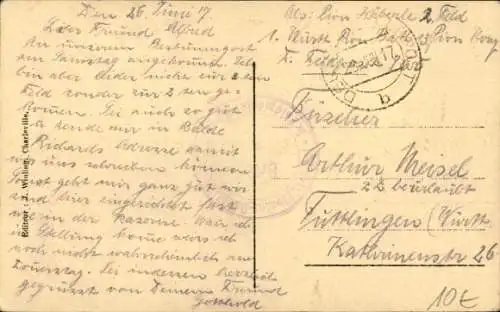 Den 26. Juni 17.
Lieber Freund Alfred
An unserem Bestimmungsort
am Samstag angekommen. Ich
bin aber leider nicht zur 2ten
Feld sonder zur 2ten
kommen. Sei auch so gut
u sende mir in Balde
Richards Adresse damit
schreiben können
Sonst geht mir ganz gut wir
sind hier eingerichtet fast
wie in der Kazerne. Wair ich
in Stellung kome weis ich
noch nicht wahrscheinlich am
Donnerstag. Sei indessen herzlich
gegrüsst von Deinem Freund
Gotthold
Editeur: J. Winling, Charleville.
Abs: Pion Häberle 2. Feld
1. Württ Pion Batl 13 Pion Komp
K. D. Feldpost
b
Pizecher
Arthur Meisel
zz beurlaubt
Tuttlingen (Württ
Katharinenstr 26
10€